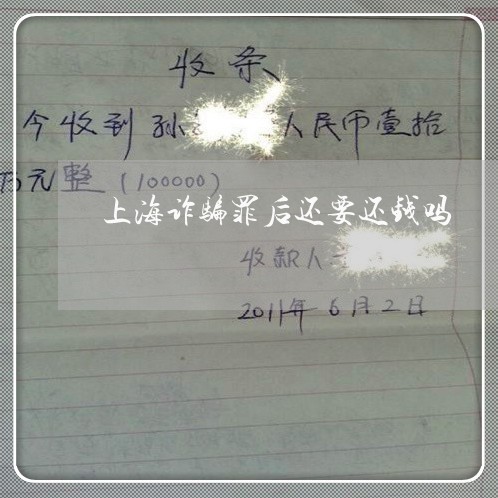 收条
今收到孙 人民币壹拾
万元整(100000)
上海诈骗罪后还要还钱吗
收款人
2011年6月2日